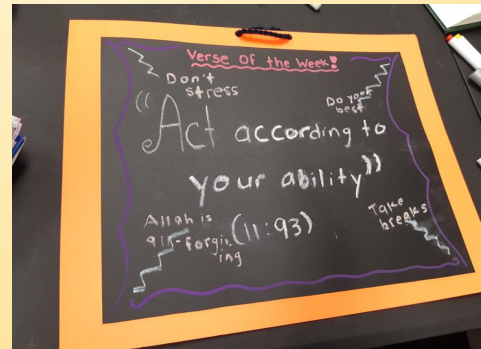 Verse of the Week!
Don't
stress
Do your
best
"Act according to
your ability"
Allah is
all-forgiv
ing
(11:93)
Take
breaks